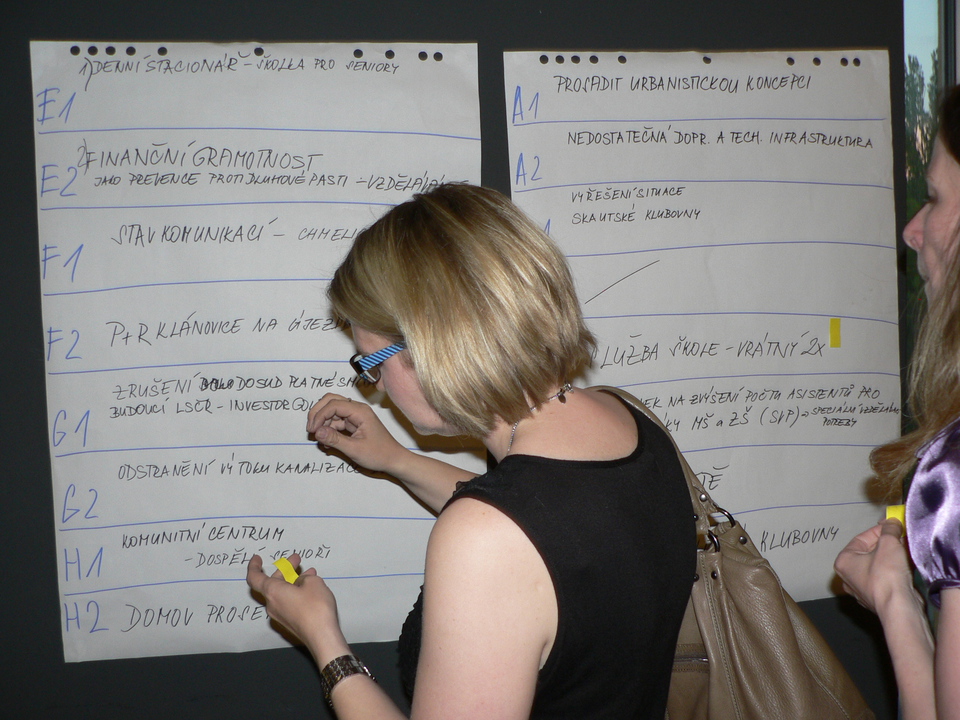 1) DENNÍ STACIONÁŘ - ŠKOLKA PRO SENIORY
E1
2) FINANČNÍ GRAMOTNOST
E2 JAKO PREVENCE PROTI DLUHOVÉ PASTI - VZDĚLÁVÁNÍ
STAV KOMUNIKACÍ -
F1
F2 P+R KLÁNOVICE NA
ZRUŠENÍ DOSUD PLATNÉ
BUDOUCÍ LSČR - INVESTOR
G1
ODSTRANĚNÍ VÝTOKU
G2
KOMUNITNÍ CENTRUM
H1 - DOSPĚLÍ SENIOŘI
H2 DOMOV
PROSADIT URBANISTICKOU KONCEPCI
A1
NEDOSTATEČNÁ DOPR. A TECH. INFRASTRUKTURA
A2
VYŘEŠENÍ SITUACE
SKAUTSKÉ KLUBOVNY
SLUŽBA ŠKOLE - VRÁTNÝ 2x
NA ZVÝŠENÍ POČTU ASISTENTŮ PRO
MŠ a ZŠ (SVP) → SPECIÁLNÍ VZDĚLÁV.
POTŘEBY
KLUBOVNY